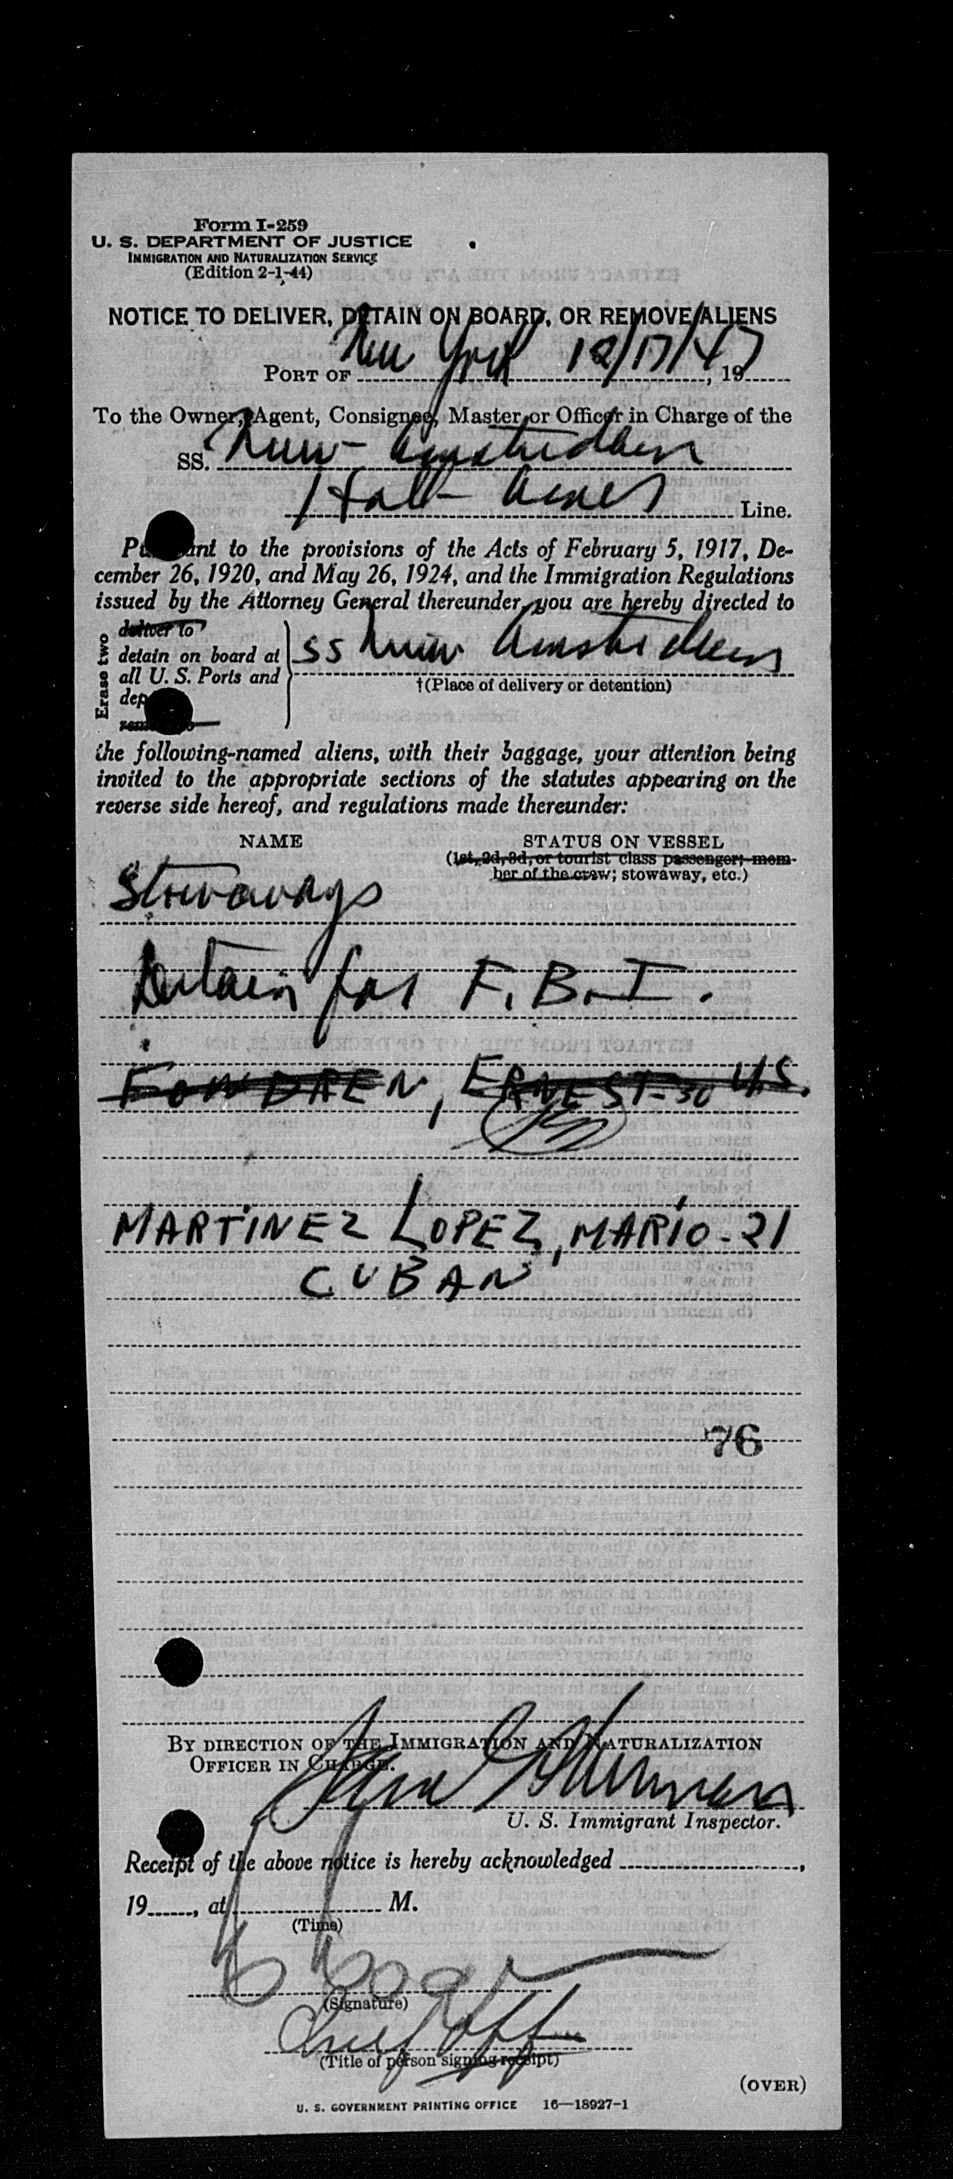 Form I-259
U. S. DEPARTMENT OF JUSTICE
IMMIGRATION AND NATURALIZATION SERVICE
(Edition 2-1-44)
NOTICE TO DELIVER, DETAIN ON BOARD, OR REMOVE ALIENS
PORT OF New York 12/17/47, 19
To the Owner, Agent, Consignee, Master, or Officer in Charge of the
SS. New Amsterdam
Holl- Amer Line.
Pursuant to the provisions of the Acts of February 5, 1917, De-
cember 26, 1920, and May 26, 1924, and the Immigration Regulations
issued by the Attorney General thereunder, you are hereby directed to
Erase two
deliver to
detain on board at
all U. S. Ports and
SS New Amsterdam
†(Place of delivery or detention)
the following-named aliens, with their baggage, your attention being
invited to the appropriate sections of the statutes appearing on the
reverse side hereof, and regulations made thereunder:
NAME STATUS ON VESSEL
(1st, 2d, 3d, or tourist class passenger; mem-
ber of the crew; stowaway, etc.)
Stowaways
Detain for F.B.I.
FOWDREN, ERNEST-30 US.
MARTINEZ LOPEZ, MARIO-21
CUBAN
76
BY DIRECTION OF THE IMMIGRATION AND NATURALIZATION
OFFICER IN CHARGE.
U. S. Immigrant Inspector.
Receipt of the above notice is hereby acknowledged ,
19 , at M.
(Time)
(Signature)
Chief Off
(Title of person signing receipt)
(OVER)
U. S. GOVERNMENT PRINTING OFFICE 16—18927-1